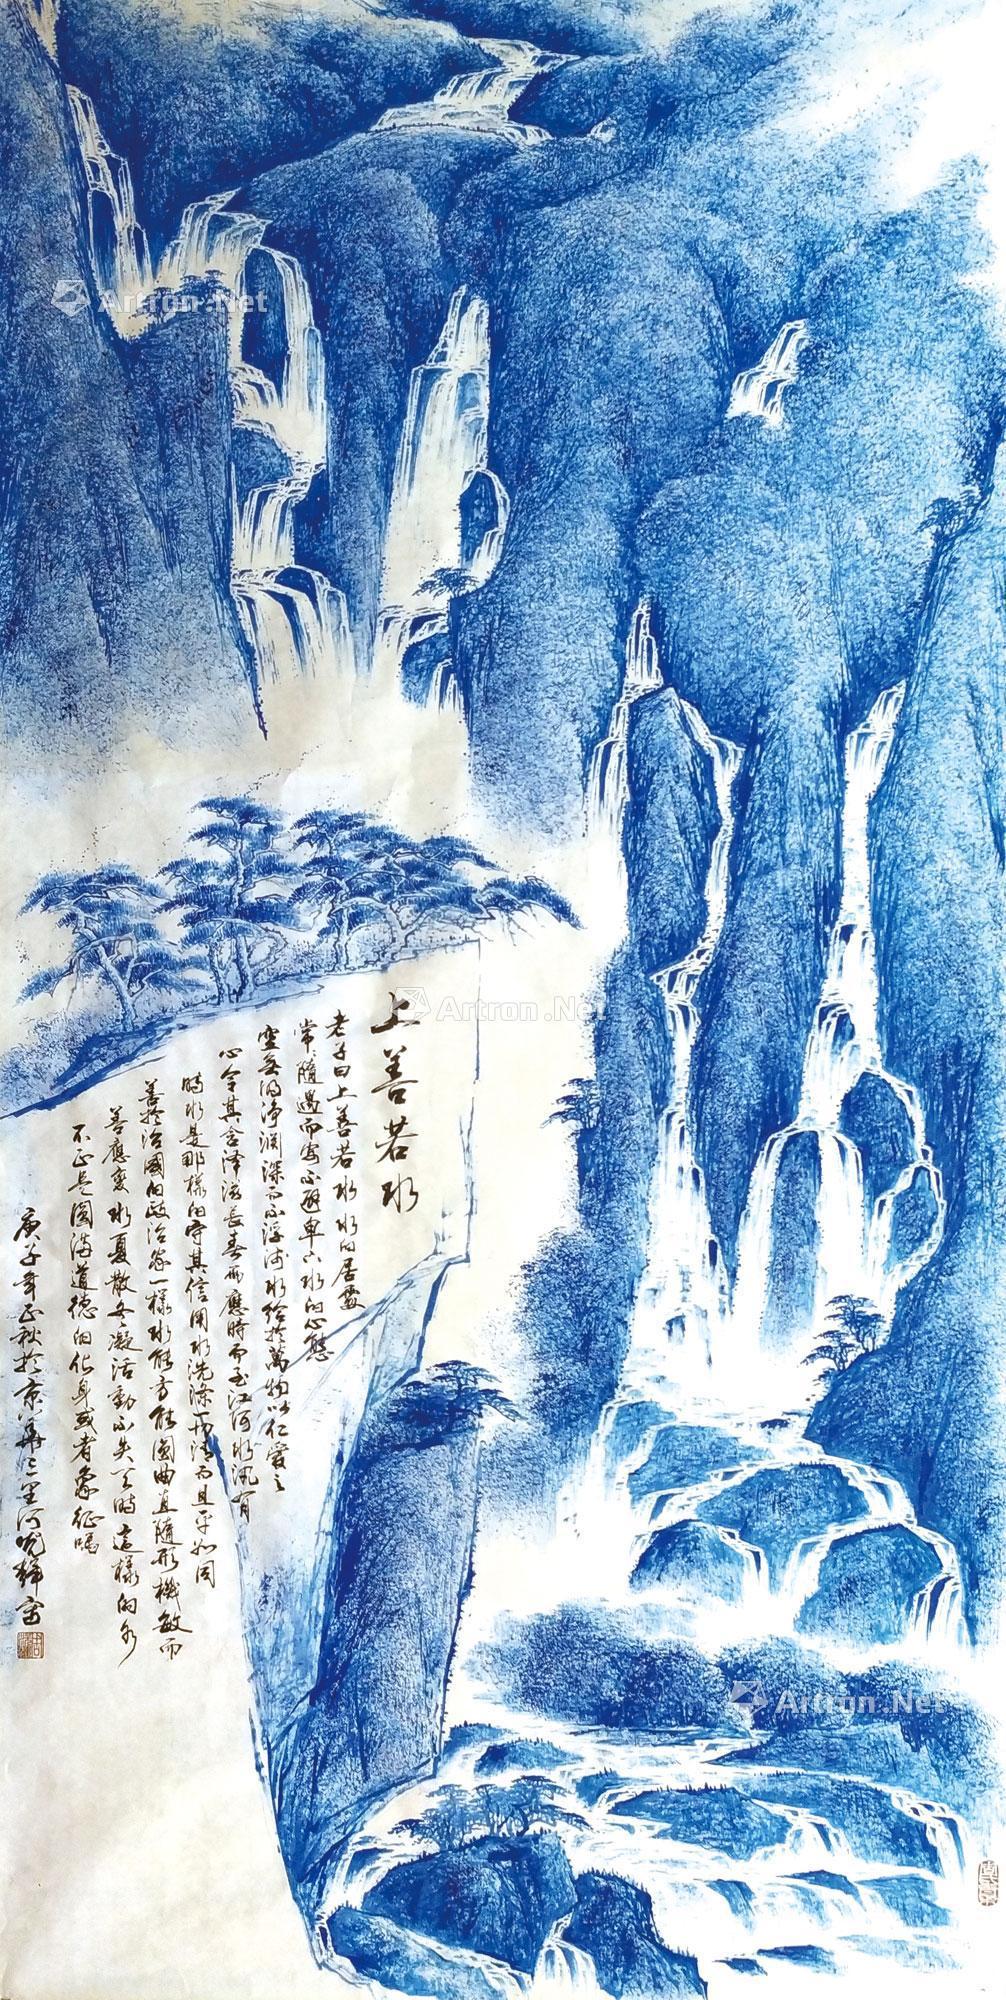 上善若水
老子曰上善若水水的居處
常隨遇而安不避卑下水的心態
空無洞淨淵深而不浮淺水給於萬物以仁愛之
心令其含澤滋長春雨應時而至江河水汛有
時水是那樣的守其信用水洗滌一切清而且平如同
善於治國的政治家一樣水能方能圓曲直隨形機敏而
善應變水夏散冬凝活動不失天時這樣的水
不正是圓滿道德的化身或者象征嗎
庚子年正秋於京華三里河
Artron.Net
Artron.Net
Artron.Net